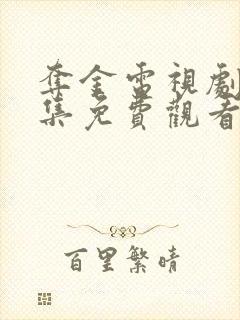 奪金電視劇
集免費觀看
百里繁晴